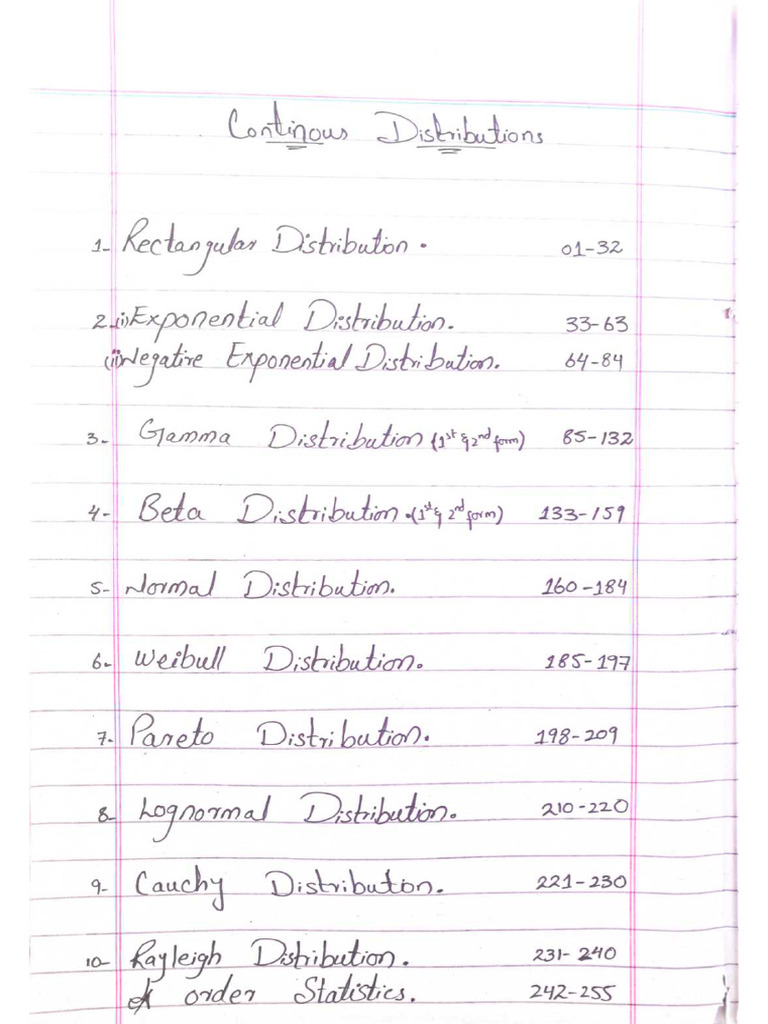 Continous Distributions
1- Rectangular Distribution. 01-32
2.(i) Exponential Distribution. 33-63
(ii) Negative Exponential Distribution. 64-84
3- Gamma Distribution (1st & 2nd form) 85-132
4- Beta Distribution.(1st & 2nd form) 133-159
5- Normal Distribution. 160-184
6- Weibull Distribution. 185-197
7- Pareto Distribution. 198-209
8- Lognormal Distribution. 210-220
9- Cauchy Distribution. 221-230
10- Rayleigh Distribution. 231-240
order Statistics. 242-255